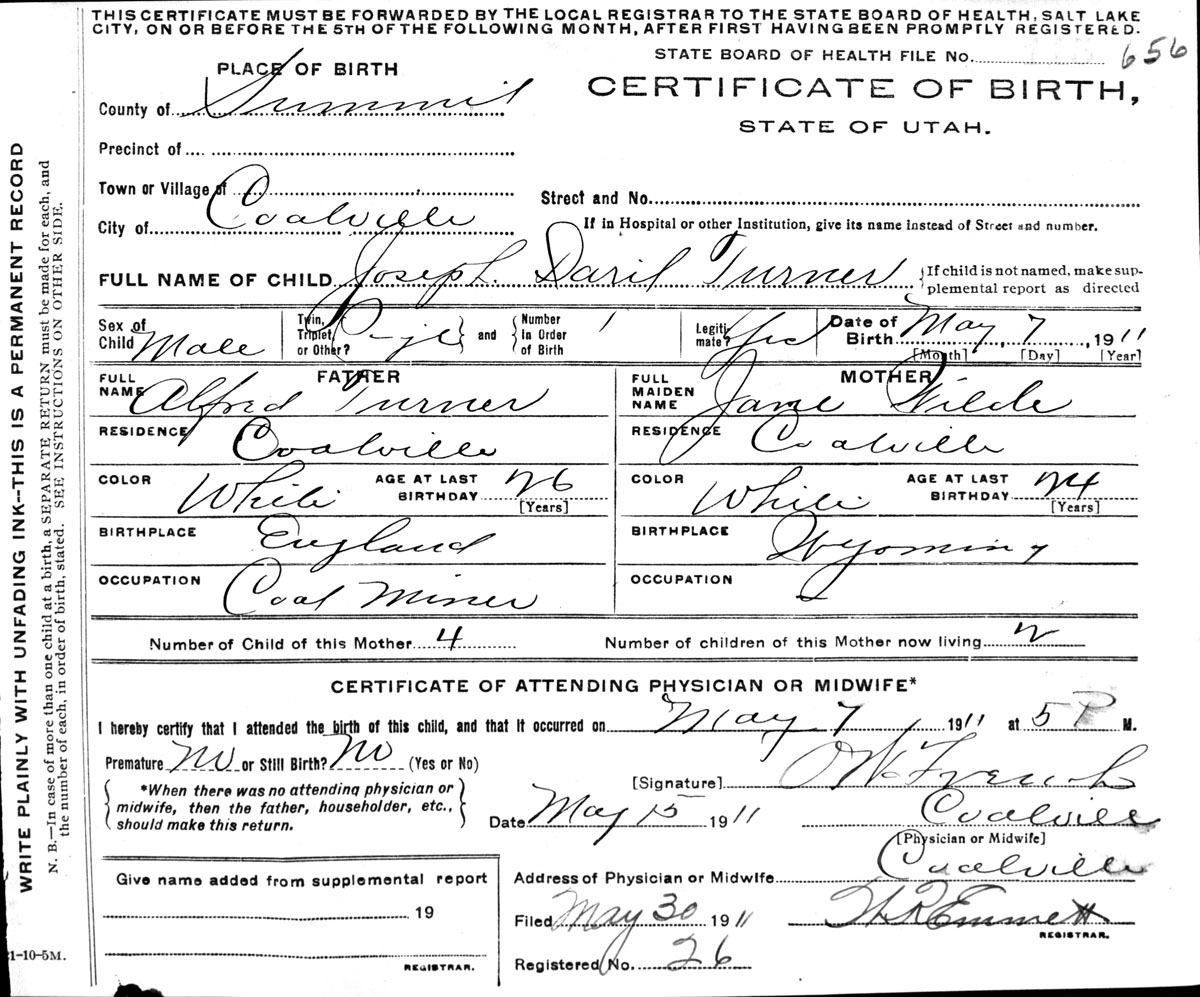 THIS CERTIFICATE MUST BE FORWARDED BY THE LOCAL REGISTRAR TO THE STATE BOARD OF HEALTH, SALT LAKE
CITY, ON OR BEFORE THE 5TH OF THE FOLLOWING MONTH, AFTER FIRST HAVING BEEN PROMPTLY REGISTERED.
STATE BOARD OF HEALTH FILE No. 656
PLACE OF BIRTH
CERTIFICATE OF BIRTH,
STATE OF UTAH.
County of Summit
Precinct of
Town or Village of
City of Coalville
Street and No.
If in Hospital or other Institution, give its name instead of Street and number.
FULL NAME OF CHILD Joseph Daril Turner
If child is not named, make sup-
plemental report as directed
Sex of Child Male
Twin, Triplet or Other? Single and Number In Order of Birth 1
Legiti mate? Yes
Date of Birth May 7, 1911
[Month] [Day] [Year]
FATHER
FULL NAME Alfred Turner
RESIDENCE Coalville
COLOR White AGE AT LAST BIRTHDAY 26
[Years]
BIRTHPLACE England
OCCUPATION Coal Miner
MOTHER
FULL MAIDEN NAME Jane Wilde
RESIDENCE Coalville
COLOR White AGE AT LAST BIRTHDAY 24
[Years]
BIRTHPLACE Wyoming
OCCUPATION
Number of Child of this Mother 4 Number of children of this Mother now living 2
CERTIFICATE OF ATTENDING PHYSICIAN OR MIDWIFE*
I hereby certify that I attended the birth of this child, and that it occurred on May 7, 1911 at 5 P M.
Premature No or Still Birth? No (Yes or No)
*When there was no attending physician or
midwife, then the father, householder, etc.,
should make this return.
[Signature] O W French
Date May 15 1911 Coalville
[Physician or Midwife]
Address of Physician or Midwife Coalville
Filed May 30 1911 Emmett
REGISTRAR.
Registered No. 26
Give name added from supplemental report
19
REGISTRAR.
1-10-5M.
WRITE PLAINLY WITH UNFADING INK--THIS IS A PERMANENT RECORD
N. B.—In case of more than one child at a birth, a SEPARATE RETURN must be made for each, and
the number of each, in order of birth, stated. SEE INSTRUCTIONS ON OTHER SIDE.